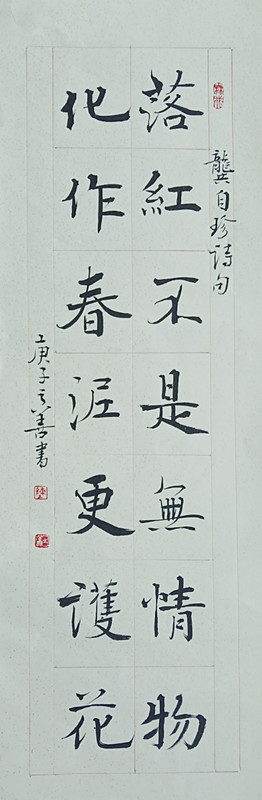 龔自珍詩句
落紅不是無情物
化作春泥更護花
庚子
書